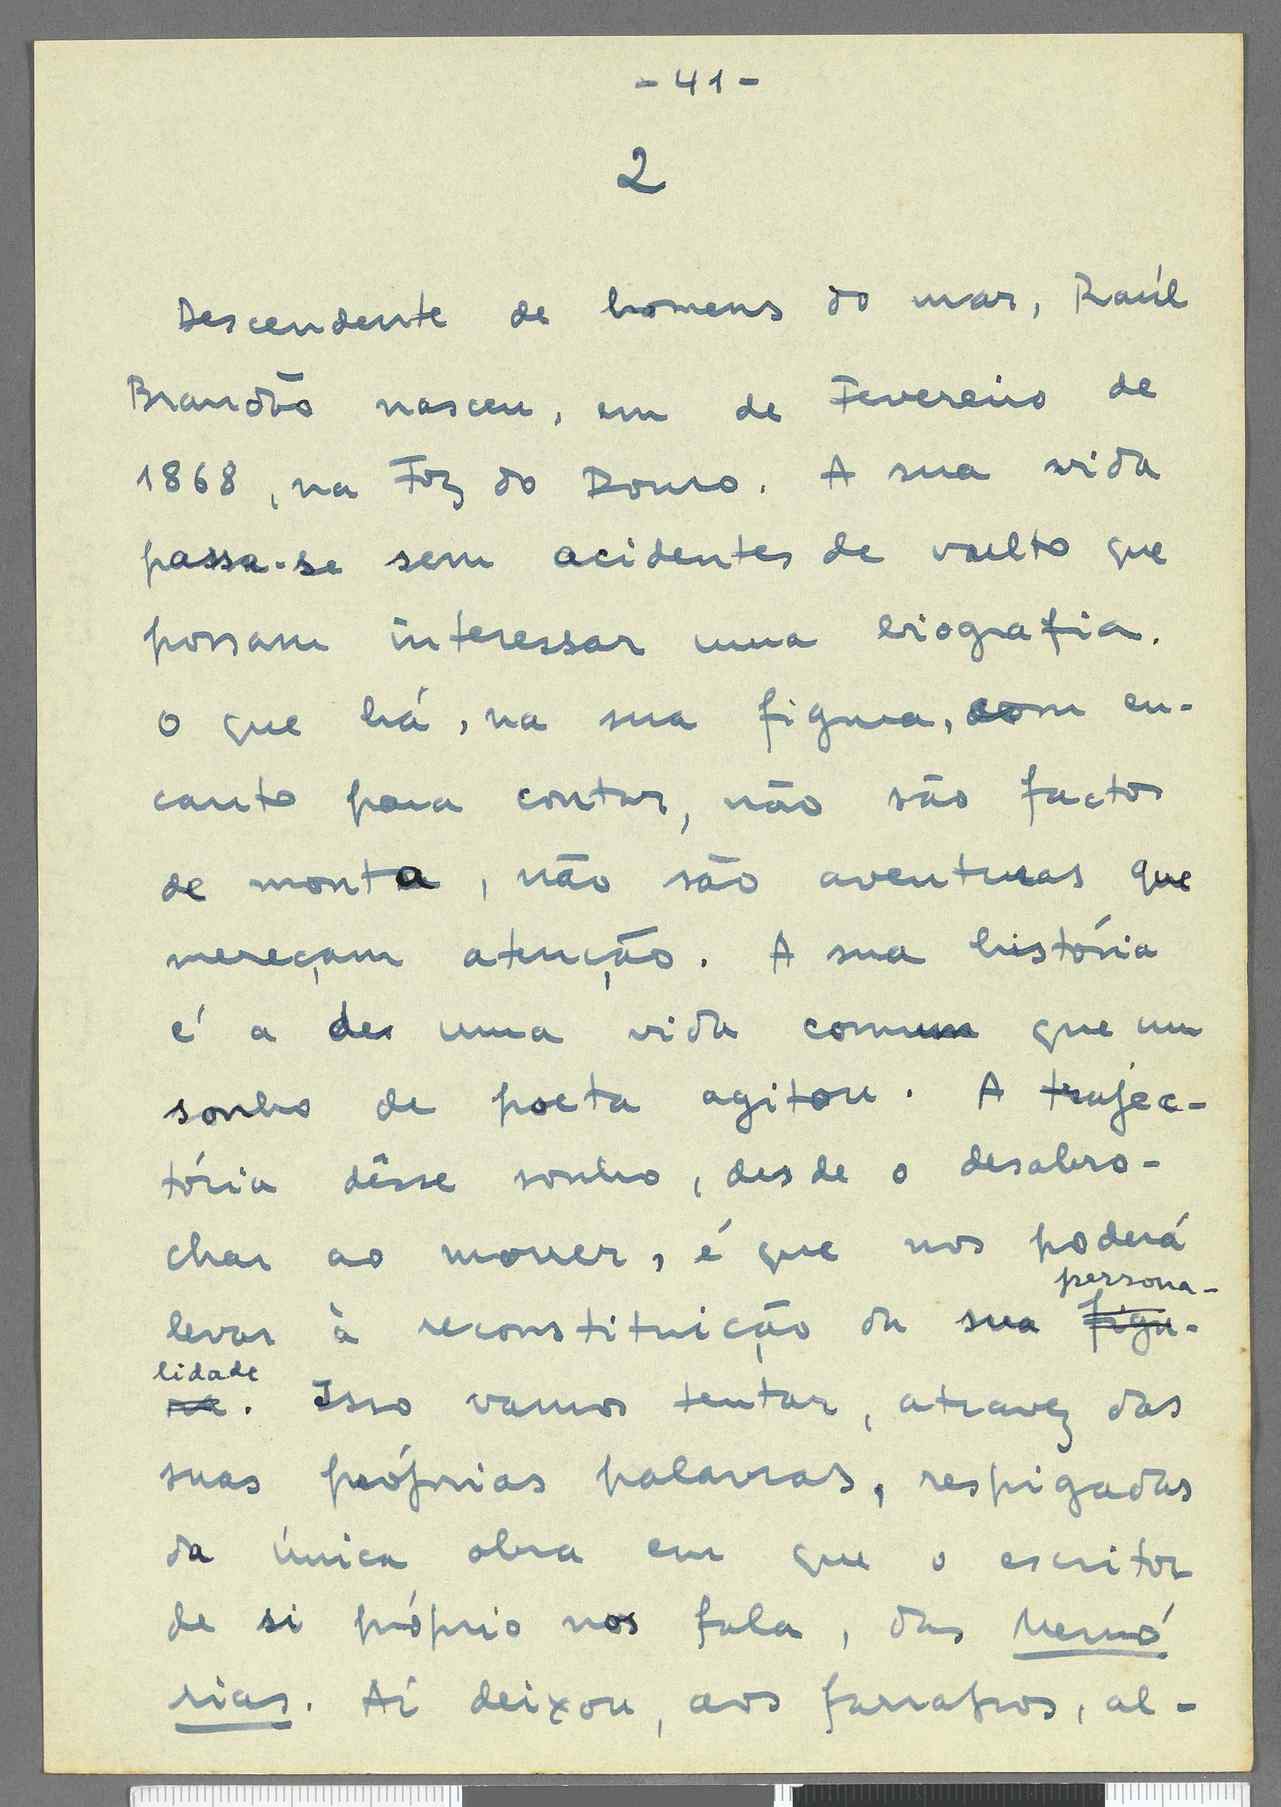 - 41 -
2
Descendente de homens do mar, Raúl
Brandão nasceu, em de Fevereiro de
1868, na Foz do Douro. A sua vida
passa-se sem acidentes de vulto que
possam interessar uma biografia.
O que há, na sua figura, com en-
canto para contar, não são factos
de monta, não são aventuras que
mereçam atenção. A sua história
é a de uma vida comum que um
sonho de poeta agitou. A trajec-
tória dêsse sonho, desde o desabro-
char ao morrer, é que nos poderá
persona-
levar à reconstituição da sua figu-
lidade
ra. Isso vamos tentar, atravez das
suas próprias palavras, respigadas
da única obra em que o escritor
de si próprio nos fala, das Memó
rias. Aí deixou, aos farrapos, al-